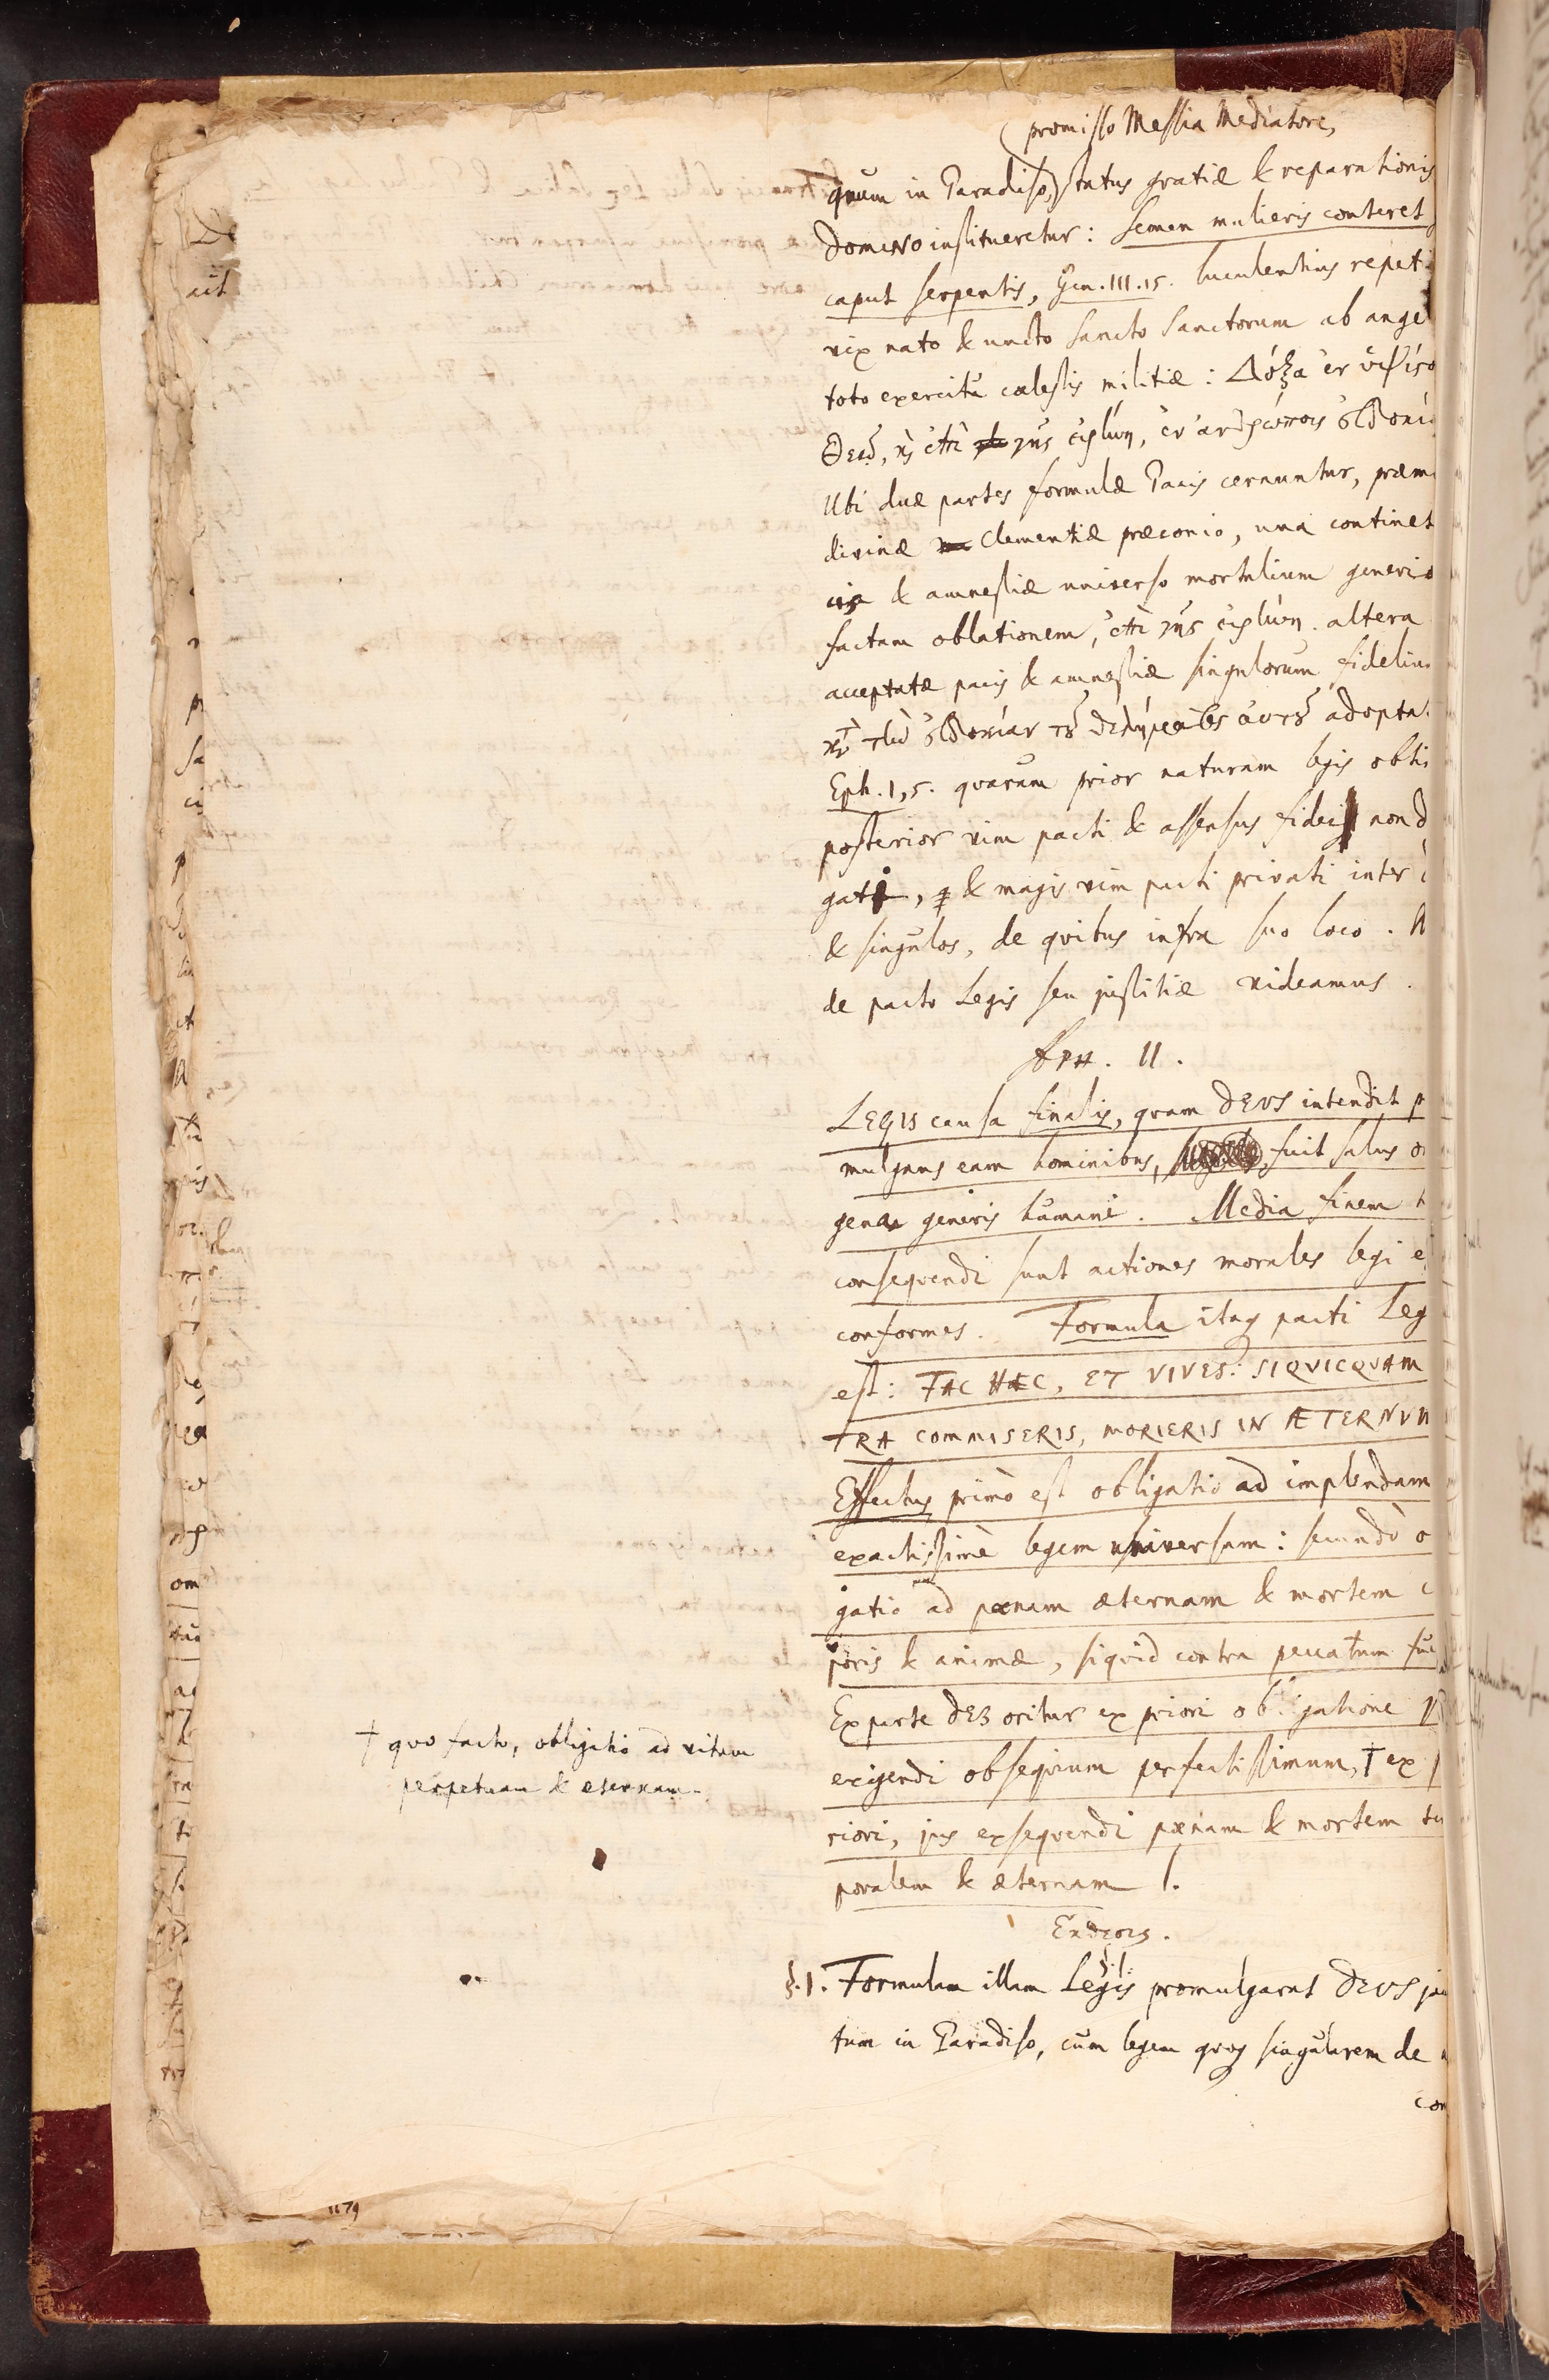 promisso Messia Mediatore,
quum in Paradiso, status gratiæ & reparationis
DOMINO institueretur: Semen mulieris conteret
caput serpentis, Gen. III. 15. luculentius repeti
vix nato & uncto Sancto Sanctorum ab angel
toto exercitu cælestis militiæ: Δόξα ἐν ὑψίσ
Θεῷ, ϗ ἐπὶ γῆς εἰρήνη, ἐν ἀνθρώποις εὐδοκί
Ubi duæ partes formulæ Pacis cernuntur, præm
divinæ Clementiæ præconio, una continet
cis & amnestiæ universo mortalium generi
factam oblationem, ἐπὶ γῆς εἰρήνη. altera
acceptatæ pacis & amnestiæ singulorum fideliu
κτ τὴν εὐδοκίαν τȣ θελήματος αὐτȣ adopta
Eph. 1, 5. quarum prior naturam legis obti
posterior vim pacti & assensus fidei non d
gati, & magis vim pacti privati inter
& singulos, de quibus infra suo loco. N
de pacto Legis seu justitiæ videamus.
APH. II.
LEGIS causa finalis, quam DEUS intendit p
mulgans eam hominibus, fuit salus
gena generis humani. Media finem h
consequendi sunt actiones morales legi e
conformes. Formula itaq pacti Leg
est: FAC HÆC, ET VIVES: SI QVICQVAM
TRA COMMISERIS, MORIERIS IN ÆTERNUM
Effectus primò est obligatio ad implendam
exactissimè legem universam: secundò o
gatio ad pœnam æternam & mortem c
poris & animæ, siquid contra peccatum fue
Ex parte DEI oritur ex priori obligatione
exigendi obsequium perfectissimum, † ex p
riori, jus exsequendi pœnam & mortem te
poralem & æternam.
† quo facto, obligatio ad vitam
perpetuam & eternam.
Ἔκθεσις.
§. 1. Formulam illam Legis promulgarat DEUS ja
tum in Paradiso, cum legem quoq singularem de
com
1179